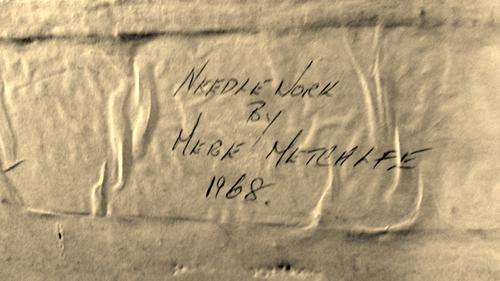 NEEDLE WORK
BY
MERE METCALFE
1968.